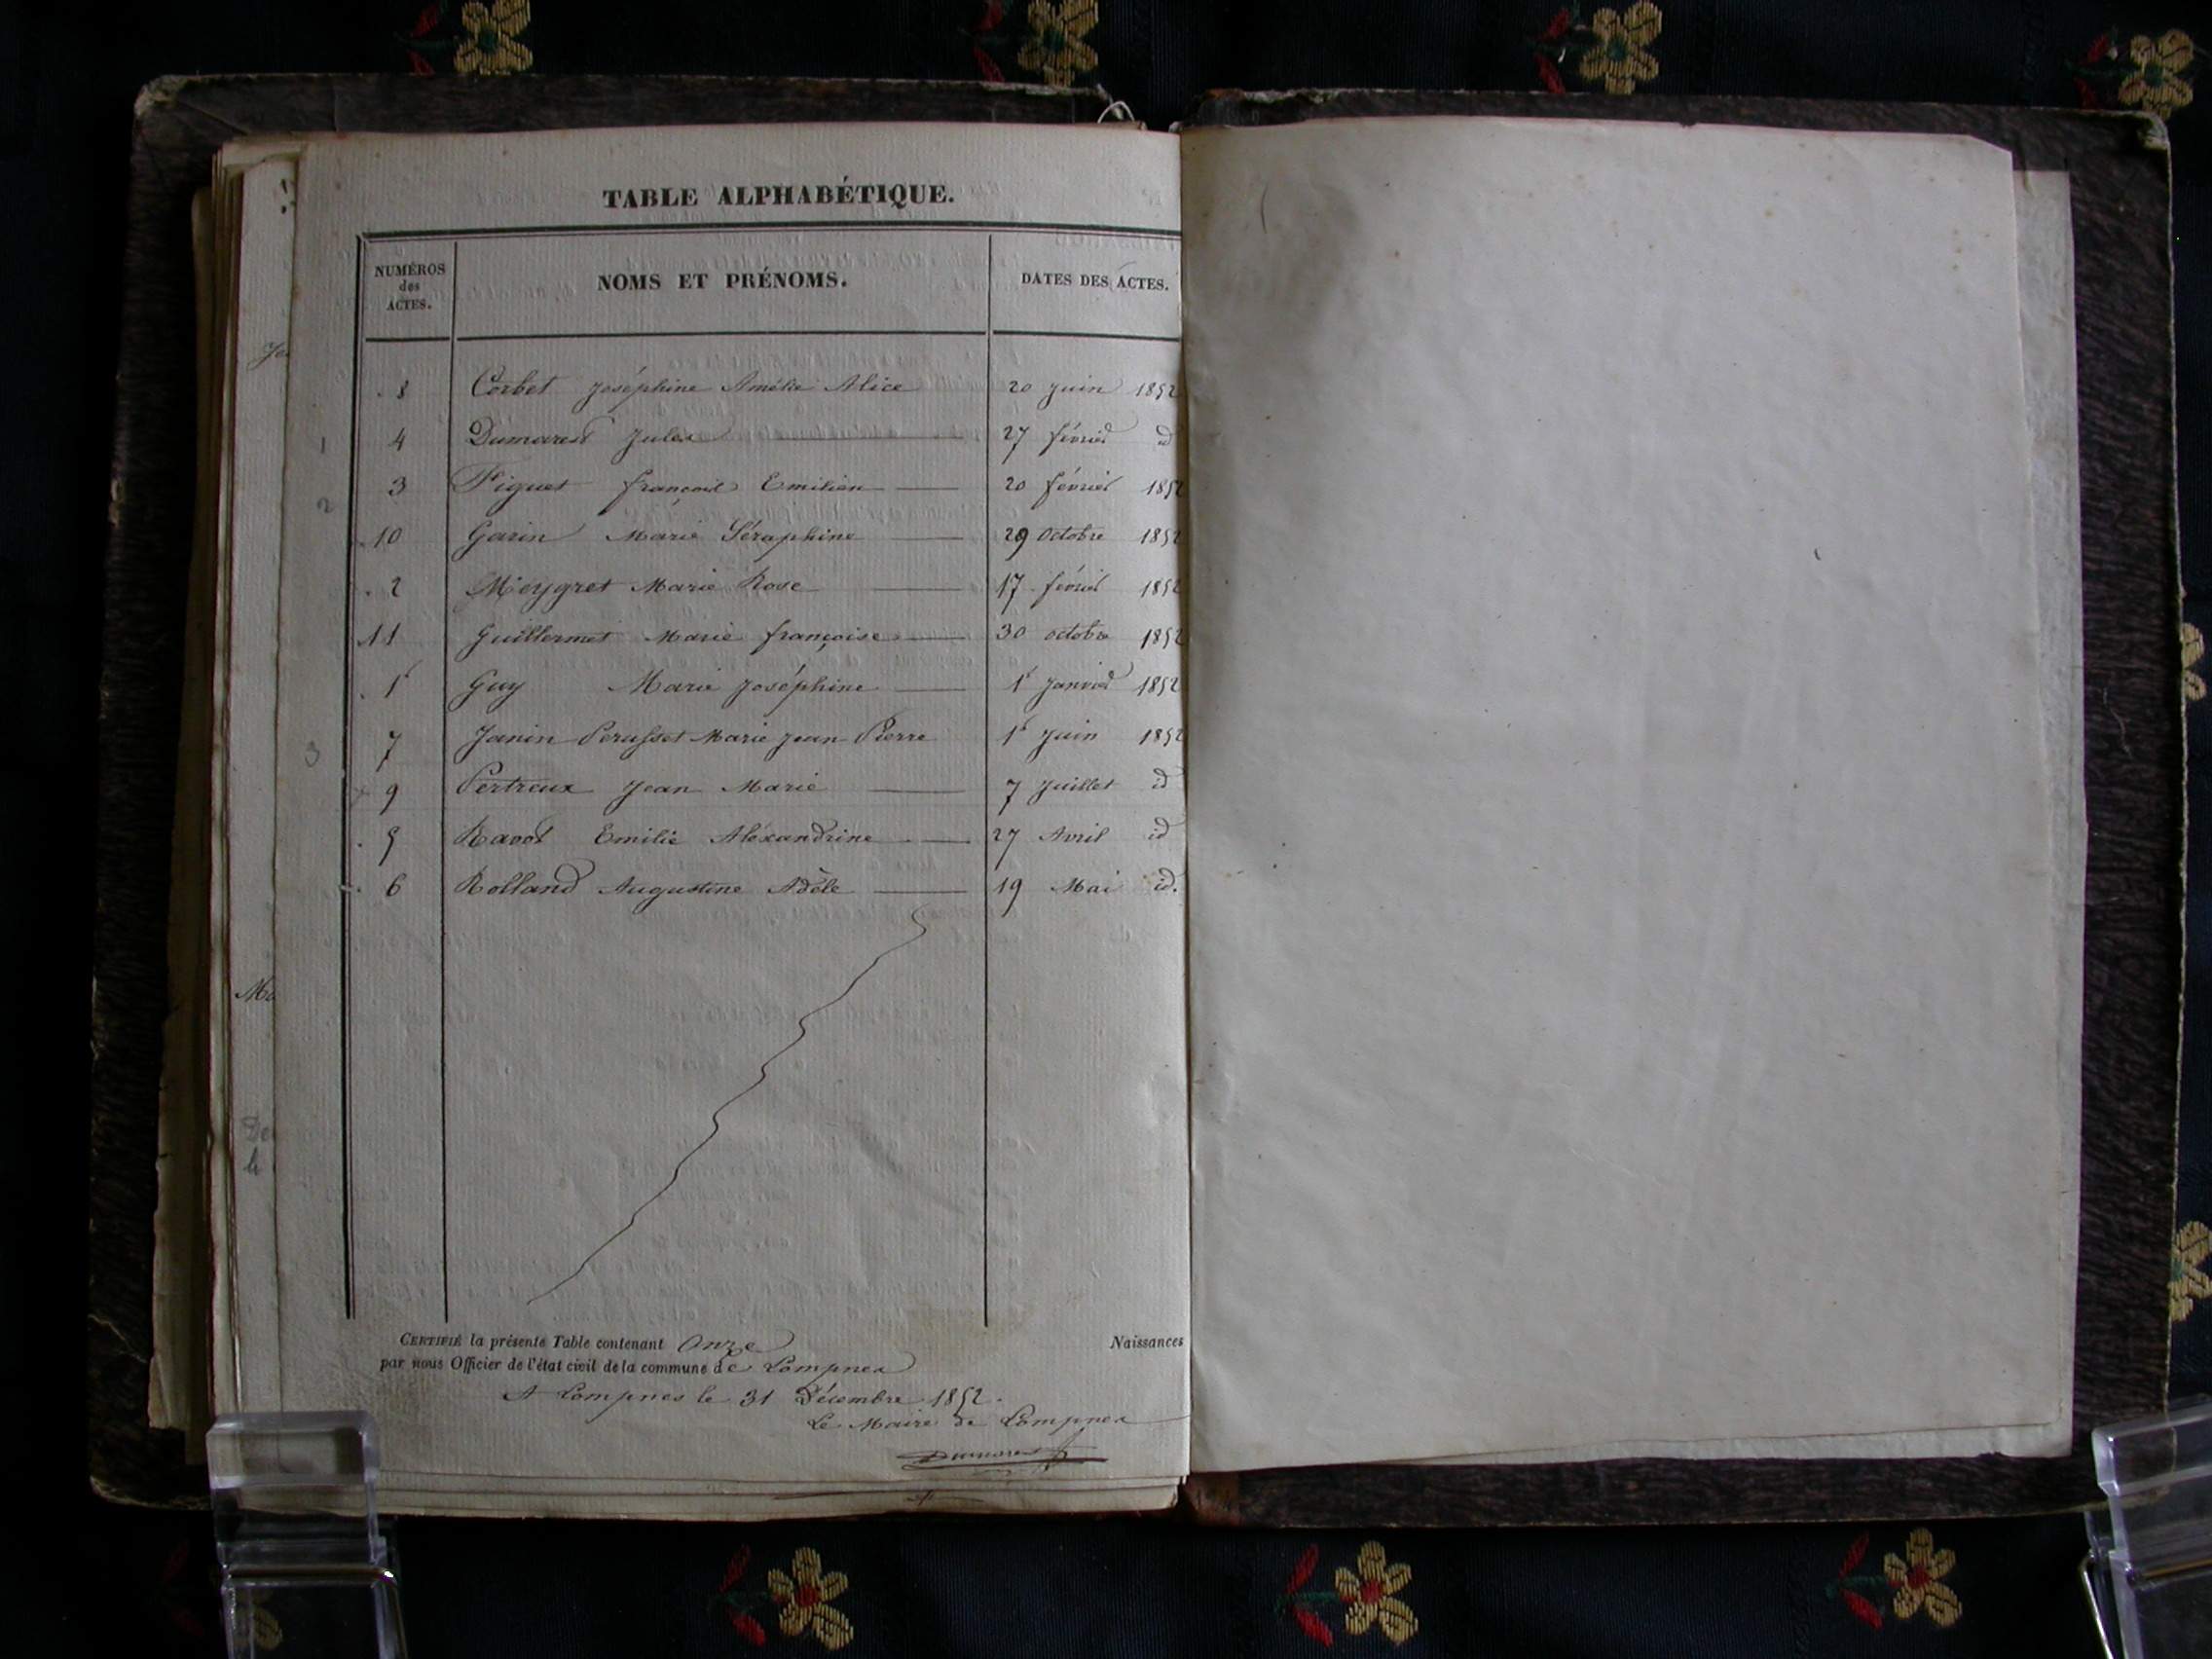 TABLE ALPHABÉTIQUE.
NUMÉROS des ACTES. NOMS ET PRÉNOMS. DATES DES ACTES.
8 Corbet Joséphine Amélie Alice 20 Juin 1852
4 Dumarest Jules 27 février id
3 Figuet françois Emilien 20 février 1852
10 Garin Marie Séraphine 29 Octobre 1852
2 Meygret Marie Rose 17 février 1852
11 Guillermet Marie françoise 30 octobre 1852
1r Guy Marie Joséphine 1r Janvier 1852
7 Janin Perusset Marie Jean Pierre 1r Juin 1852
9 Pertreux Jean Marie 7 Juillet id
5 Ravot Emilie Aléxandrine 27 Avril id
6 Rolland Augustine Adèle 19 Mai id.
CERTIFIÉ la présente Table contenant Onze Naissances
par nous Officier de l'état civil de la commune de Lompnes
A Lompnes le 31 Décembre 1852.
Le Maire de Lompnes
Dumarest